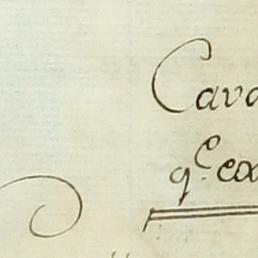 Cava
q.e ex